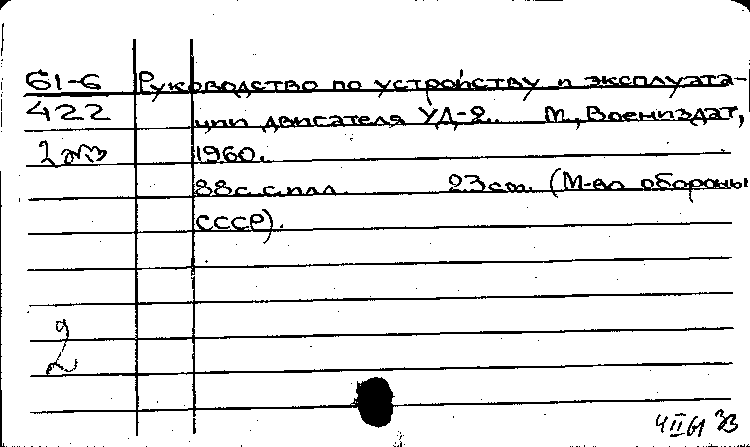 61-6 Руководство по устройству и эксплуата-
422 ции двигателя УД-2. М., Воениздат,
2 экз 1960.
88с. с илл. 23 см. (М-во обороны
СССР).
2
4 II 61 ЗВ